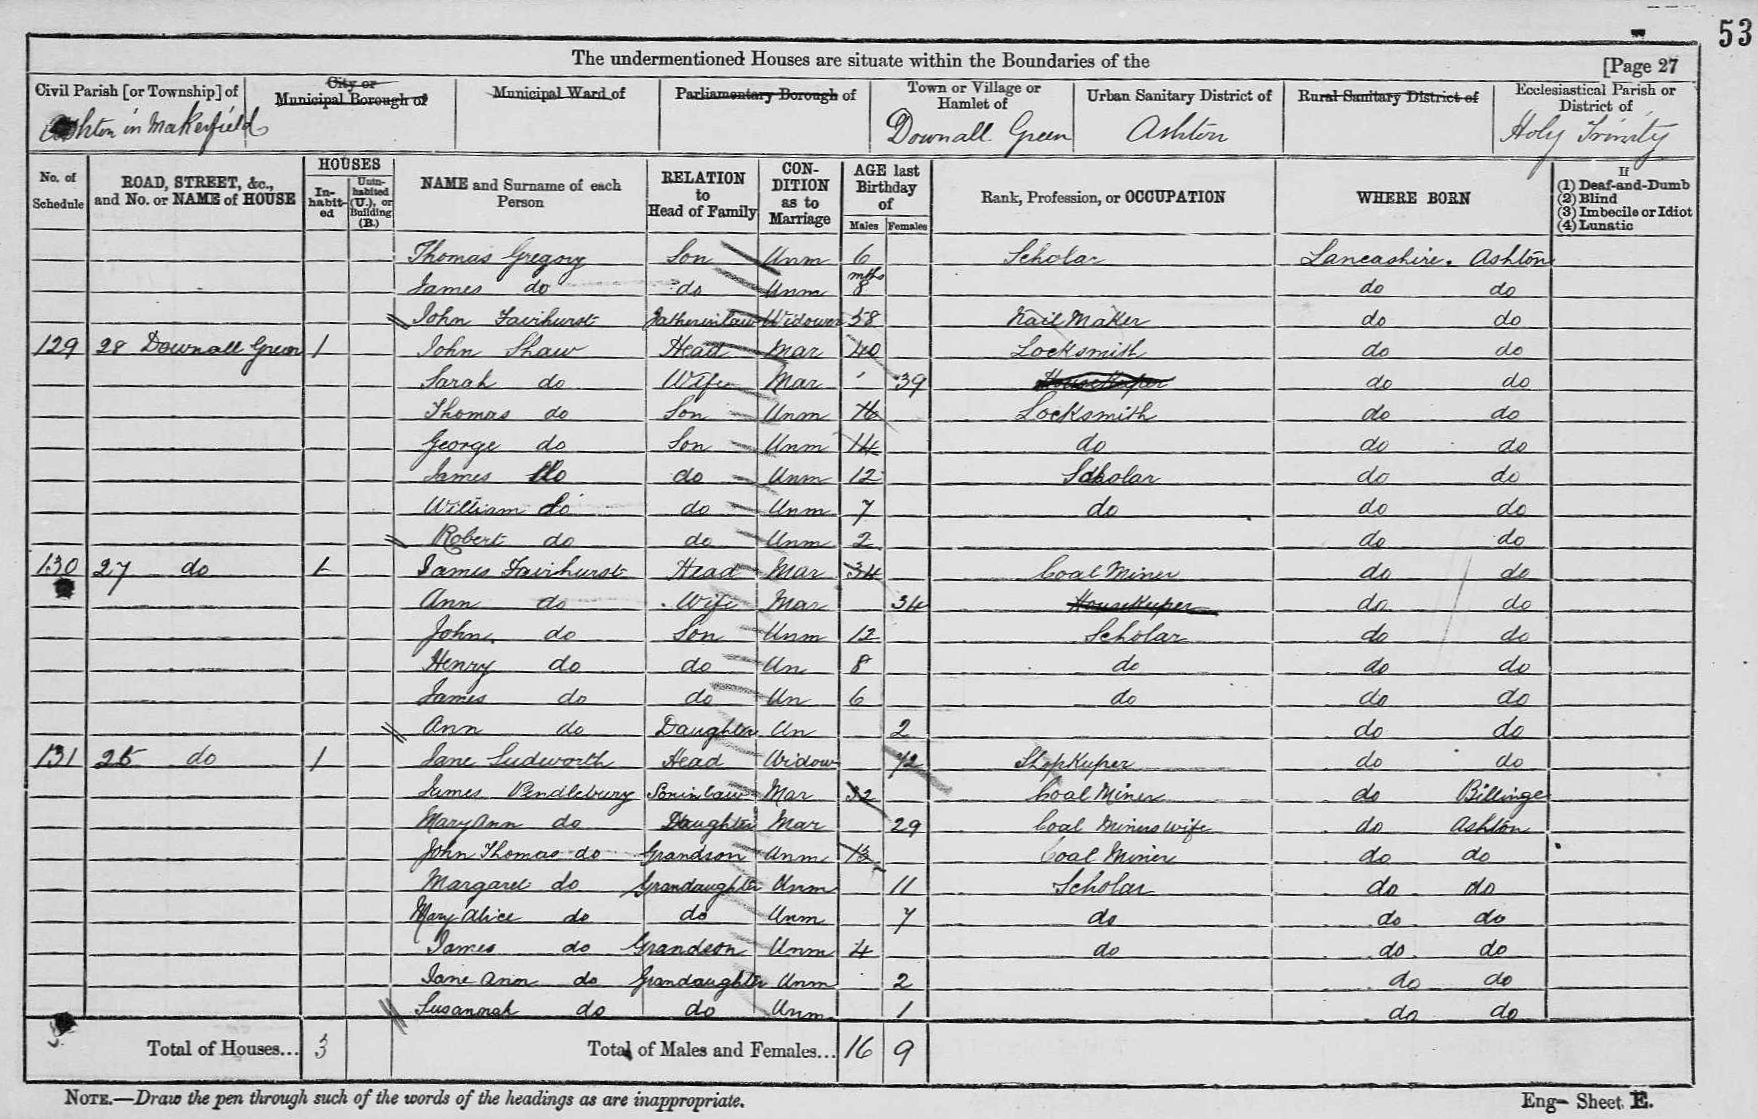 53
The undermentioned Houses are situate within the Boundaries of the
[Page 27
Civil Parish [or Township] of
City or Municipal Borough of
Municipal Ward of
Parliamentary Borough of
Town or Village or Hamlet of
Urban Sanitary District of
Rural Sanitary District of
Ecclesiastical Parish or District of
Ashton in Makerfield
Downall Green
Ashton
Holy Trinity
No. of Schedule
ROAD, STREET, &c., and No. or NAME of HOUSE
HOUSES
In-habit-ed
Unin-habited (U.), or Building (B.)
NAME and Surname of each Person
RELATION to Head of Family
CON-DITION as to Marriage
AGE last Birthday of
Males
Females
Rank, Profession, or OCCUPATION
WHERE BORN
If
(1) Deaf-and-Dumb
(2) Blind
(3) Imbecile or Idiot
(4) Lunatic
Thomas Gregory Son Unm 6 Scholar Lancashire. Ashton
James do do Unm 8 mths do do
John Fairhurst Fatherinlaw Widower 58 Nail Maker do do
129 28 Downall Green 1 John Shaw Head Mar 40 Locksmith do do
Sarah do Wife Mar 39 Housekeeper do do
Thomas do Son Unm 16 Locksmith do do
George do Son Unm 14 do do do
James do do Unm 12 Scholar do do
William do do Unm 7 do do do
Robert do do Unm 2 do do
130 27 do 1 James Fairhurst Head Mar 34 Coal Miner do do
Ann do Wife Mar 34 Housekeeper do do
John do Son Unm 12 Scholar do do
Henry do do Un 8 do do do
James do do Un 6 do do do
Ann do Daughter Un 2 do do
131 25 do 1 Jane Sudworth Head Widow 72 Shopkeper do do
James Pendlebury Soninlaw Mar 32 Coal Miner do Billinge
Mary Ann do Daughter Mar 29 Coal Miners wife do Ashton
John Thomas do Grandson Unm 13 Coal Miner do do
Margaret do Grandaughter Unm 11 Scholar do do
Mary Alice do do Unm 7 do do do
James do Grandson Unm 4 do do do
Jane Ann do Grandaughter Unm 2 do do
Susannah do do Unm 1 do do
Total of Houses... 3
Total of Males and Females... 16 9
NOTE.—Draw the pen through such of the words of the headings as are inappropriate.
Eng— Sheet E.